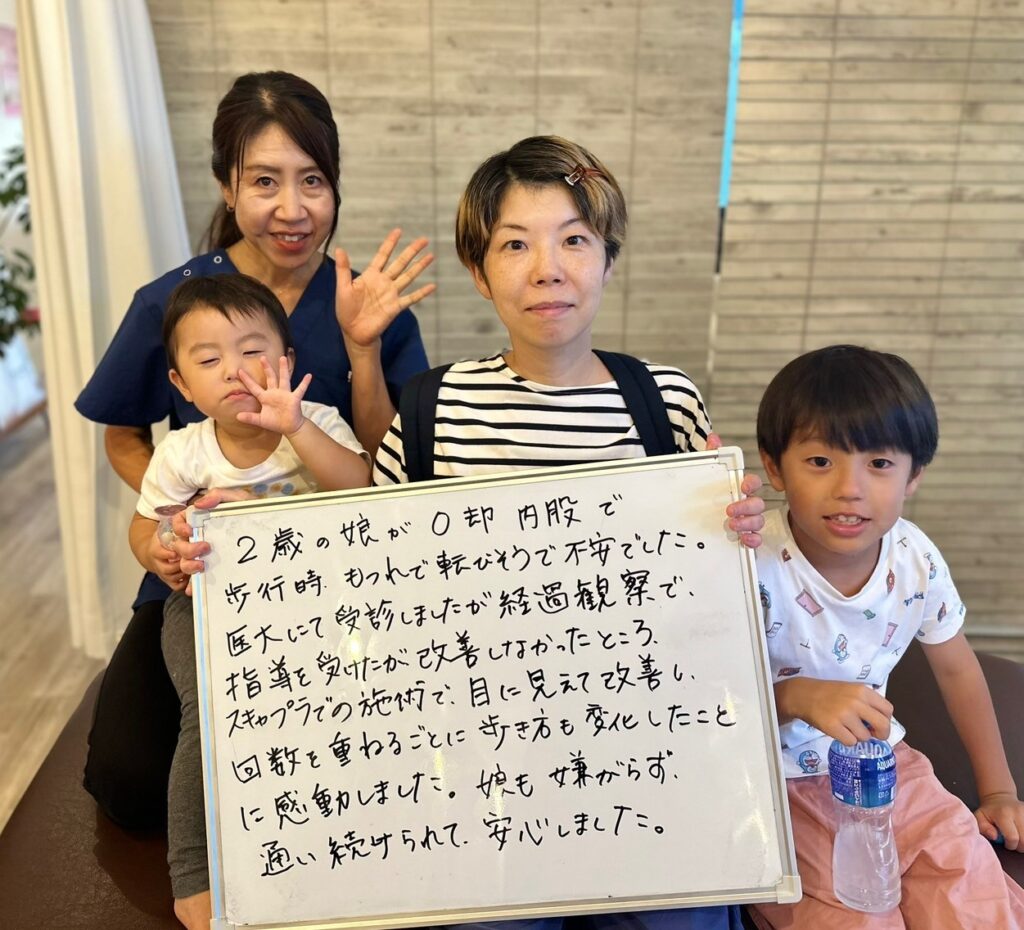 2歳の娘が O却 内股で
歩行時、もつれて転びそうで不安でした。
医大にて受診しましたが経過観察で、
指導を受けたが改善しなかったところ、
スキャプラでの施術で、目に見えて改善し、
回数を重ねるごとに歩き方も変化したこと
に感動しました。娘も嫌がらず、
通い続けられて、安心しました。
AQUARIUS